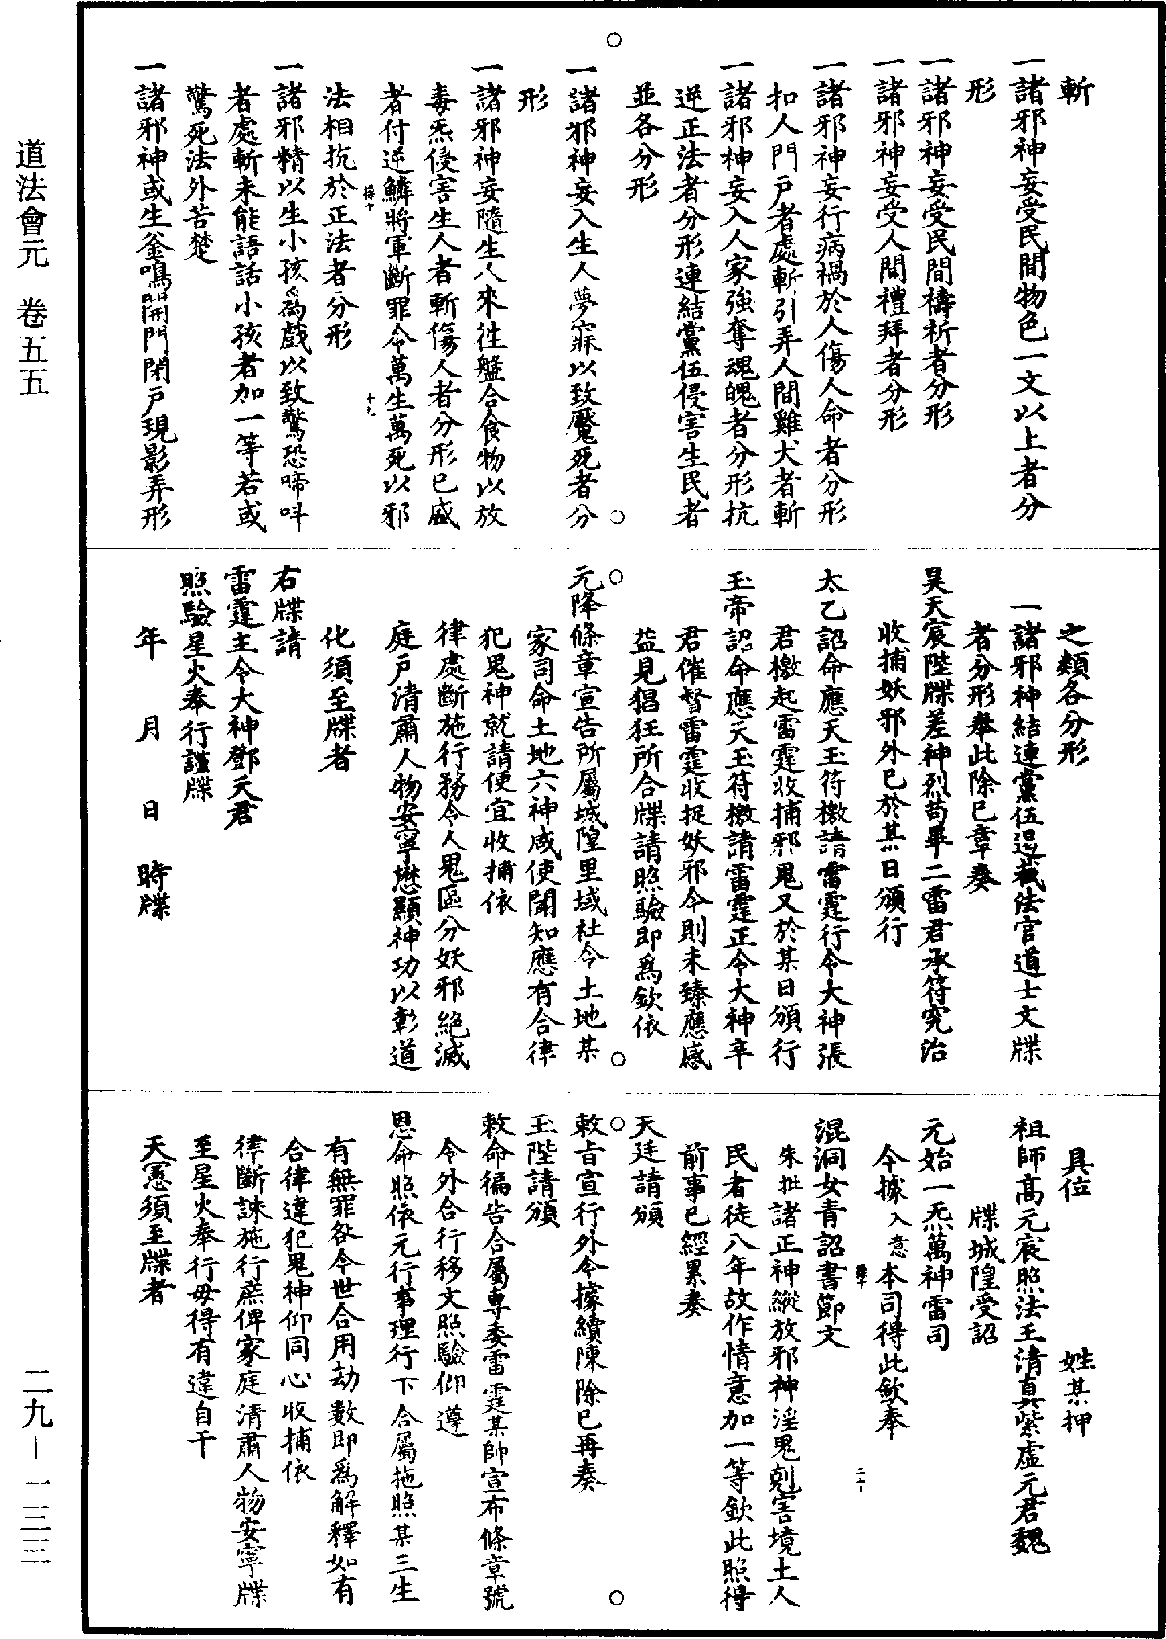 斬
一諸邪神妄受民間物色一文以上者分
形
一諸邪神妄受民間禱祈者分形
一諸邪神妄受人間禮拜者分形
一諸邪神妄行病禍於人傷人命者分形
扣人門戶者處斬引弄人間雞犬者斬
一諸邪神妄入人家強奪魂魄者分形抗
逆正法者分形連結黨伍侵害生民者
並各分形
一諸邪神妄入生人夢寐以致魘死者分
形
一諸邪神妄隨生人來往盤合食物以放
毒炁侵害生人者斬傷人者分形已盛
者付逆鱗將軍斷罪令萬生萬死以邪
十九
法相抗於正法者分形
一諸邪精以生小孩爲戲以致驚恐啼呌
者處斬未能語話小孩者加一等若或
驚死法外苦楚
一諸邪神或生釜鳴開門閉戶現影弄形
之類各分形
一諸邪神結連黨伍遏截法官道士文牒
者分形奉此除已章奏
昊天宸陛牒差神烈苟畢二雷君承符究治
收捕妖邪外已於某日頒行
太乙詔命應天玉符檄請雷霆行令大神張
君檄起雷霆收捕邪鬼又於某日頒行
玉帝詔命應天玉符檄請雷霆正令大神辛
君催督雷霆收捉妖邪今則未臻應感
益見猖狂所合牒請照驗即爲欽依
元降條章宣告所屬城隍里域社令土地某
家司命土地六神咸使聞知應有合律
犯鬼神就請便宜收捕依
律處斷施行務令人鬼區分妖邪絕滅
庭戶清肅人物安寧懋顯神功以彰道
化須至牒者
右牒請
雷霆主令大神鄧天君
照驗星火奉行謹牒
年 月 日 時牒
具位 姓某押
祖師高元宸照法王清真紫虛元君魏
牒城隍受詔
元始一炁萬神雷司
今據入意本司得此欽奉
二十
混洞女青詔書節文
朱批諸正神縱放邪神淫鬼剋害境土人
民者徒八年故作情意加一等欽此照得
前事已經累奏
天廷請頒
敕旨宣行外今據續陳除已再奏
玉陛請頒
敕命徧告合屬專委雷霆某帥宣布條章號
令外合行移文照驗仰遵
恩命照依元行事理行下合屬拖照某三生
有無罪咎今世合用劫數即爲解釋如有
合律違犯鬼神仰同心收捕依
律斷誅施行庶俾家庭清肅人物安寧牒
至星火奉行毋得有違自干
天憲須至牒者
道法會元 卷五五
二九－一三三